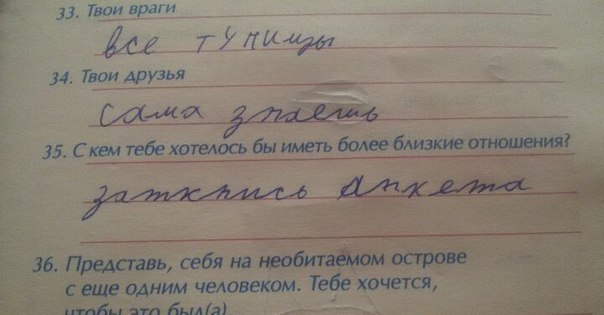 33. Твои враги
все тупицы
34. Твои друзья
сама знаешь
35. С кем тебе хотелось бы иметь более близкие отношения?
заткнись анкета
36. Представь, себя на необитаемом острове
с еще одним человеком. Тебе хочется,
чтобы это был(а)